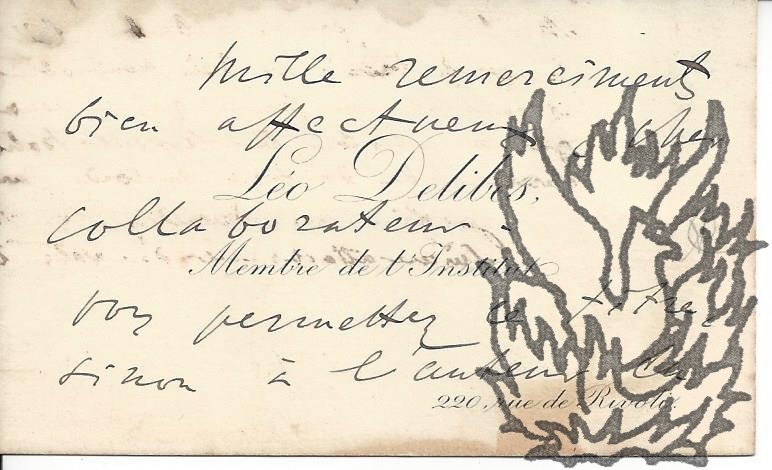 Mille remerciments
bien affectueux, cher
Léo Delibes,
collaborateur.
Membre de l'Institut
vous permettez ce titre,
sinon à l'auteur du
220, rue de Rivoli.